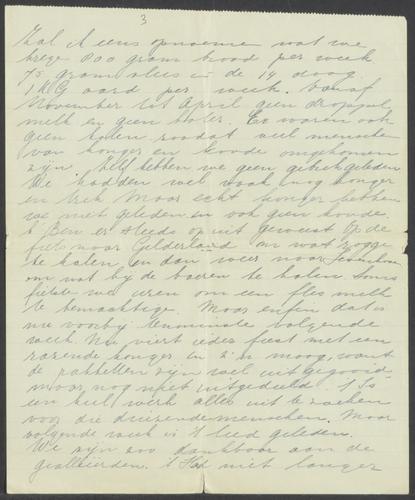 3
Zal ik eens opnoeme wat we
krege 800 gram brood per week
75 gram vlees in de 14 daag.
1 KG aard per week. Vanaf
November tot April geen druppel
melk en geen boter. Er waren ook
geen kolen zoodat veel menschen
van honger en koude omgekomen
zijn. Zelf hebben we geen gebrek geleden
We hadden wel vaak nog honger
en trek maar echt honger hebben
we niet geleden en ook geen koude.
k Ben er steeds op uit geweest op de
fiets naar Gelderland om wat rogge
te halen, en dan weer naar
om wat by de boeren te halen. Soms
fietste we uren om een fles melk
te bemachtige. Maar enfin dat is
nu voorby tenminste volgende
week. Nu viert ieder feest met een
razende honger in z'n maag, want
de pakketten zijn wel uitgegooid
maar, nog niet uitgedeeld. t Is
een heel werk alles uit te zoeken
voor die duizende menschen. Maar
volgende week is 't leed geleden.
We zijn zoo dankbaar aan de
geallieërden. t Had niet langer